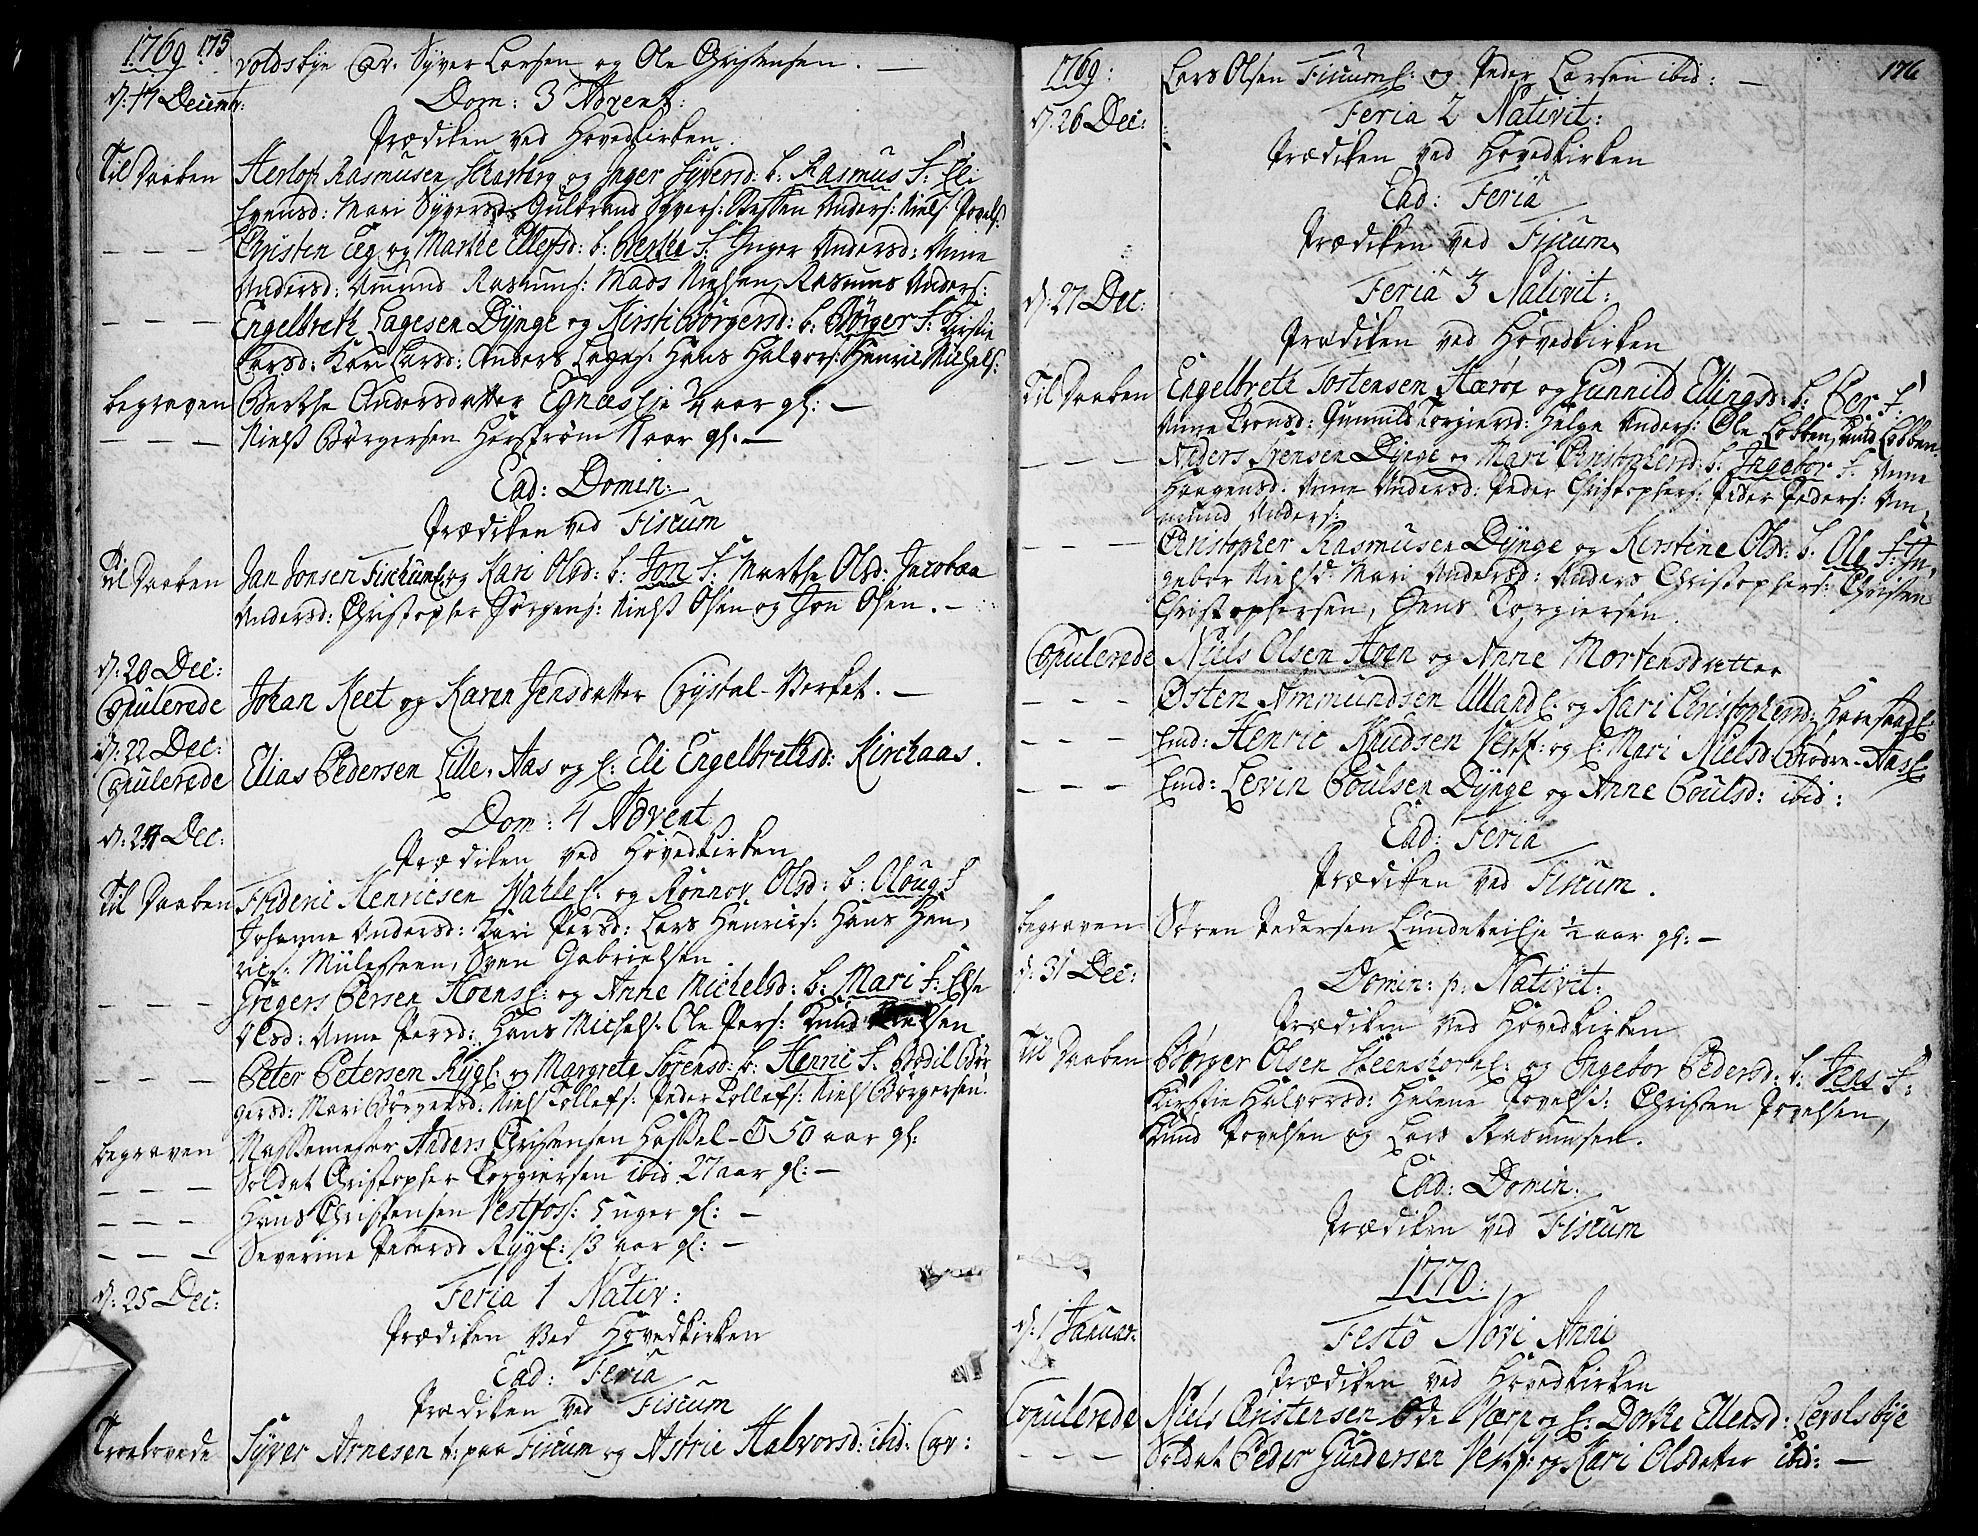 1769 175
voldsbye Cav. Syver Larsen og Ole Christensen. —
d: 17 Decembr: Dom: 3 Advent:
Prædiken ved Hovedkirken.
Til Daaben Herlof Rasmusen Skarberg og Inger Syversd: b: Rasmus F: Eli
Evensd: Mari Syversd: Guldbrand Syvers: Steffen Anders: Niels Povels:
— — — Christen Teg og Marthe Ellefsd: b: Berthe F: Inger Andersd: Anne
Andersd: Amund Rasmus: Mads Nielsen, Rasmus Anders:
— — — Engelbreth Lagesen Dynge og Kirsti Børgersd: b: Børger F: Kirstie
Larsd: Kari Larsd: Anders Lages: Hans Halvors: Henric Michels:
begraven Berthe Andersdatter Egnæs Eje 3/4 aar gl: —
— — — Niels Børgersen Horstrøm 11 aar gl: —
Ead: Domin:
Prædiken ved Fiscum
Til Daaben Jan Jonsen Fischum E: og Kari Olsd: b: Jon F: Marthe Olsd: Jacobaa
Andersd: Christopher Jørgens: Niels Olsen og Jon Olsen. —
d: 20 Dec:
Copulerede Johan Keet og Karen Jensdatter Crystal-Verket. —
d: 22 Dec:
Copulerede Elias Pedersen Lille-Aas og E: Eli Engelbrethsd: Kirchaas.
d: 24 Dec: Dom: 4 Advent
Prædiken ved Hovedkirken
Til Daaben Frideric Henricsen Wahle E: og Rønnov Olsd: b: Oloug F
Johanne Andersd: Kari Persd: Lars Henrics: Hans Hen-
rics: Mülesteen, Sven Gabrielsen.
— — — Gregers Persen Hoens E: og Anne Michelsd: b: Mari F: Else
Olsd: Anne Persd: Hans Michels: Ole Pers: Knud Nielsen
— — — Peter Petersen Ryg E: og Margrete Sørensd: b: Henric F: Bodil Bør-
gersd: Mari Børgersd: Niels Tollefs: Peder Tollefs: Niels Børgersen.
begraven Massemester Anders Christensen Hassel- 50 aar gl:
— — — Soldat Christopher Torgiersen ibid 27 aar gl: —
— — — Hans Christensen Vestfos: 5 uger gl: —
— — — Severine Petersd Ryg E: 13 aar gl: —
d: 25 Dec: Feria 1 Nativ:
Prædiken ved Hovedkirken
Ead: Feria
Prædiken ved Fiscum
Troelovede Syver Arnesen t: paa Fiscum og Astrie Halvorsd: ibid: Cav:
1769: 176
Lars Olsen Fiscum E: og Peder Larsen ibid: —
d: 26 Dec: Feria 2 Nativit:
Prædiken ved Hovedkirken
Ead: Feria
Prædiken ved Fiscum
d: 27 Dec: Feria 3 Nativit:
Prædiken ved Hovedkirken
Til Daaben Engelbreth Tostensen Haroe og Gunnild Ellingsd: b: Per F:
Anne Tronsd: Gunnild Torgiersd: Helge Anders: Ole Lobben, Knud Lobben.
— — — Anders Svensen Dynge og Mari Christophersd: b: Ingebor F: Anne
Haagensd: Anne Andersd: Peder Christophers: Peder Peders: Am-
mund Anders:
— — — Christopher Rasmusen Dynge og Kirstine Olsd: b: Ole F: In-
gebor Nielsd: Mari Andersd: Anders Christophers: Christen
Christophersen, Hans Torgiersen.
Copulerede Niels Olsen Hoen og Anne Mortensdatter
— — — Østen Ammundsen Uland E: og Kari Christophersd: Horestad E:
— — — Emd: Henric Knudsen Vestf: og E: Mari Nielsd Brødre-Aas E:
— — — Emd: Levin Poulsen Dynge og Anne Poulsd: ibid:
Ead: Feria
Prædiken ved Fiscum.
begraven Søren Pedersen Lundeteie Eje 1/2 aar gl: —
d: 31 Dec: Domin: p: Nativit:
Prædiken ved Hovedkirken
Til Daaben Børger Olsen Steenskov E: og Ingebor Pedersd: b: Jens F:
Kirstie Halvorsd: Helene Povelsd: Christen Povelsen,
Knud Povelsen og Lars Rasmusen.
Ead: Domin:
Prædiken ved Fiscum
1770:
d: 1 Januar: Festo Novi Anni
Prædiken ved Hovedkirken
Copulerede Niels Christensen Øde Varp og E: Dorthe Ellensd: Berols Eje
— — — Soldat Peder Gundersen Vestf: og Kari Olsdatter ibid: —